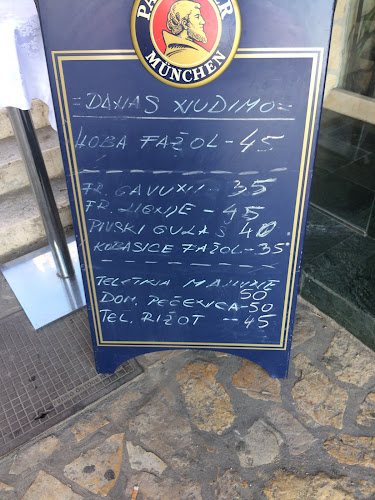 PAULANER
MÜNCHEN
=DANAS NUDIMO=
JOBA FAŽOL - 45
FR. GAVUNI - 35
FR. LIGNJE - 45
PIVSKI GULAŠ 40
KOBASICE FAŽOL - 35
TELETINA
50
DOM. PEČENICA - 50
TEL. RIŽOT -- 45